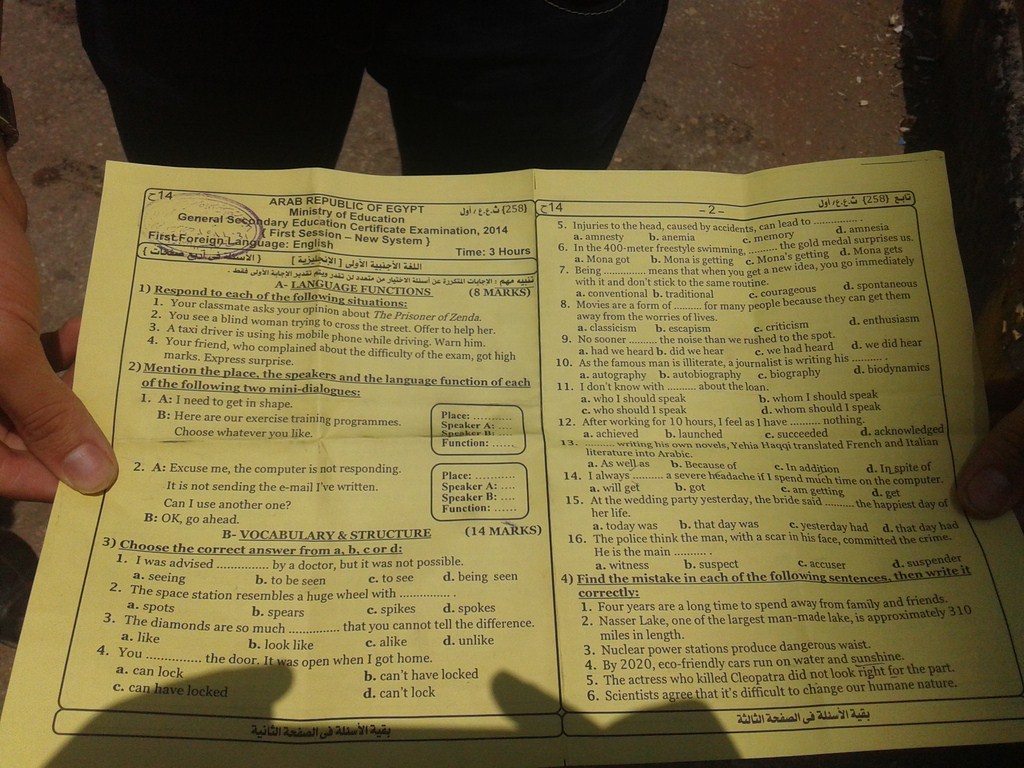 14ح
ARAB REPUBLIC OF EGYPT
{258} ث.ع.ع/أول
Ministry of Education
General Secondary Education Certificate Examination, 2014
{ First Session – New System }
First Foreign Language: English
Time: 3 Hours
اللغة الأجنبية الأولى [ الإنجليزية ] ( الأسئلة فى أربع صفحات )
تنبيه مهم : الإجابات المتكررة عن أسئلة الاختيار من متعدد لن تقدر ويتم تقدير الإجابة الأولى فقط .
A- LANGUAGE FUNCTIONS (8 MARKS)
1) Respond to each of the following situations:
1. Your classmate asks your opinion about The Prisoner of Zenda.
2. You see a blind woman trying to cross the street. Offer to help her.
3. A taxi driver is using his mobile phone while driving. Warn him.
4. Your friend, who complained about the difficulty of the exam, got high
marks. Express surprise.
2) Mention the place, the speakers and the language function of each
of the following two mini-dialogues:
1. A: I need to get in shape.
B: Here are our exercise training programmes.
Choose whatever you like.
Place: ...........
Speaker A: ....
Speaker B: ....
Function: ......
2. A: Excuse me, the computer is not responding.
It is not sending the e-mail I've written.
Can I use another one?
B: OK, go ahead.
Place: ...........
Speaker A: ....
Speaker B: ....
Function: ......
B- VOCABULARY & STRUCTURE (14 MARKS)
3) Choose the correct answer from a, b, c or d:
1. I was advised .............. by a doctor, but it was not possible.
a. seeing b. to be seen c. to see d. being seen
2. The space station resembles a huge wheel with .............. .
a. spots b. spears c. spikes d. spokes
3. The diamonds are so much .............. that you cannot tell the difference.
a. like b. look like c. alike d. unlike
4. You .............. the door. It was open when I got home.
a. can lock b. can't have locked
c. can have locked d. can't lock
بقية الأسئلة فى الصفحة الثانية
14ح
– 2 –
تابع {258} ث.ع.ع/أول
5. Injuries to the head, caused by accidents, can lead to ............ .
a. amnesty b. anemia c. memory d. amnesia
6. In the 400-meter freestyle swimming, .......... the gold medal surprises us.
a. Mona got b. Mona is getting c. Mona's getting d. Mona gets
7. Being ............ means that when you get a new idea, you go immediately
with it and don't stick to the same routine.
a. conventional b. traditional c. courageous d. spontaneous
8. Movies are a form of ........ for many people because they can get them
away from the worries of lives.
a. classicism b. escapism c. criticism d. enthusiasm
9. No sooner .......... the noise than we rushed to the spot.
a. had we heard b. did we hear c. we had heard d. we did hear
10. As the famous man is illiterate, a journalist is writing his .......... .
a. autography b. autobiography c. biography d. biodynamics
11. I don't know with .......... about the loan.
a. who I should speak b. whom I should speak
c. who should I speak d. whom should I speak
12. After working for 10 hours, I feel as I have .......... nothing.
a. achieved b. launched c. succeeded d. acknowledged
13. .......... writing his own novels, Yehia Haqqi translated French and Italian
literature into Arabic.
a. As well as b. Because of c. In addition d. In spite of
14. I always .......... a severe headache if I spend much time on the computer.
a. will get b. got c. am getting d. get
15. At the wedding party yesterday, the bride said .......... the happiest day of
her life.
a. today was b. that day was c. yesterday had d. that day had
16. The police think the man, with a scar in his face, committed the crime.
He is the main .......... .
a. witness b. suspect c. accuser d. suspender
4) Find the mistake in each of the following sentences, then write it
correctly:
1. Four years are a long time to spend away from family and friends.
2. Nasser Lake, one of the largest man-made lake, is approximately 310
miles in length.
3. Nuclear power stations produce dangerous waist.
4. By 2020, eco-friendly cars run on water and sunshine.
5. The actress who killed Cleopatra did not look right for the part.
6. Scientists agree that it's difficult to change our humane nature.
بقية الأسئلة فى الصفحة الثالثة